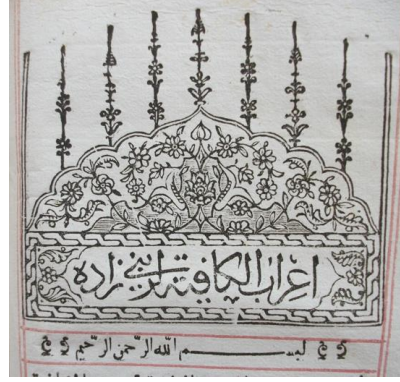 اعراب الكافية لزيني زاده
بسم الله الرّحمن الرّحيم